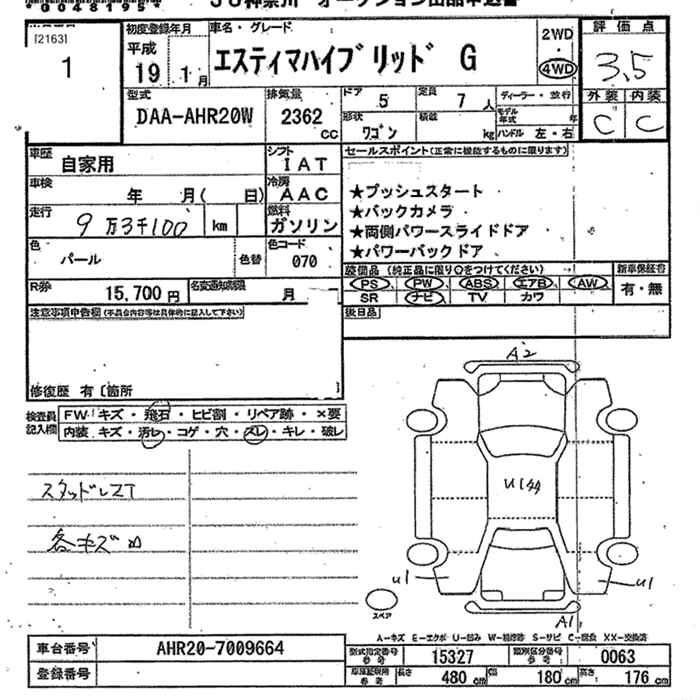 *00481951*
JU神奈川 オークション出品申込書
[2163]
1
初度登録年月
平成
19 1月
車名・グレード
エスティマハイブリッド G
2WD
4WD
評価点
3.5
外装 内装
C C
型式
DAA-AHR20W
排気量
2362
cc
ドア
5
定員
7 人
形状
ワゴン
積載
kg
ディーラー・並行
モデル年式 年
ハンドル 左・右
車歴
自家用
シフト
IAT
車検
年 月( 日)
冷房
AAC
走行
9万3千100 km
燃料
ガソリン
色
パール
色替
色コード
070
R券
15,700 円
名変通知期限
月
セールスポイント(正常に機能するものに限ります)
★プッシュスタート
★バックカメラ
★両側パワースライドドア
★パワーバックドア
装備品 (純正品に限り○をつけてください)
PS PW ABS エアB AW
SR ナビ TV カワ
新車保証書
有・無
後日品
注意事項申告欄(不具合内容等は具体的に記入して下さい)
修復歴 有〔箇所
検査員
記入欄
FW キズ・飛石・ヒビ割・リペア跡・×要
内装 キズ・汚レ・コゲ・穴・スレ・キレ・破レ
スタッドレスT
各キズ凹
A2
U1
U1
U1
A1
スペア
A-キズ E-エクボ U-凹み W-補修跡 S-サビ C-腐食 XX-交換済
車台番号
AHR20-7009664
登録番号
型式指定番号
参考
15327
類別区分番号
参考
0063
参考
長さ
480 cm
巾
180 cm
高さ
176 cm